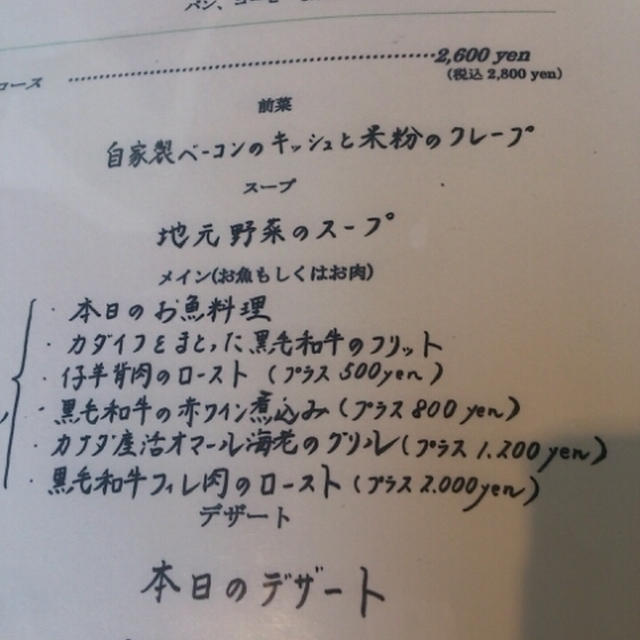 パン、コーヒー
コース 2,600 yen
(税込 2,800 yen)
前菜
自家製ベーコンのキッシュと米粉のクレープ
スープ
地元野菜のスープ
メイン(お魚もしくはお肉)
・本日のお魚料理
・カダイフをまとった黒毛和牛のフリット
・仔羊背肉のロースト(プラス500yen)
・黒毛和牛の赤ワイン煮込み(プラス800yen)
・カナダ産活オマール海老のグリル(プラス1.200yen)
・黒毛和牛フィレ肉のロースト(プラス2.000yen)
デザート
本日のデザート